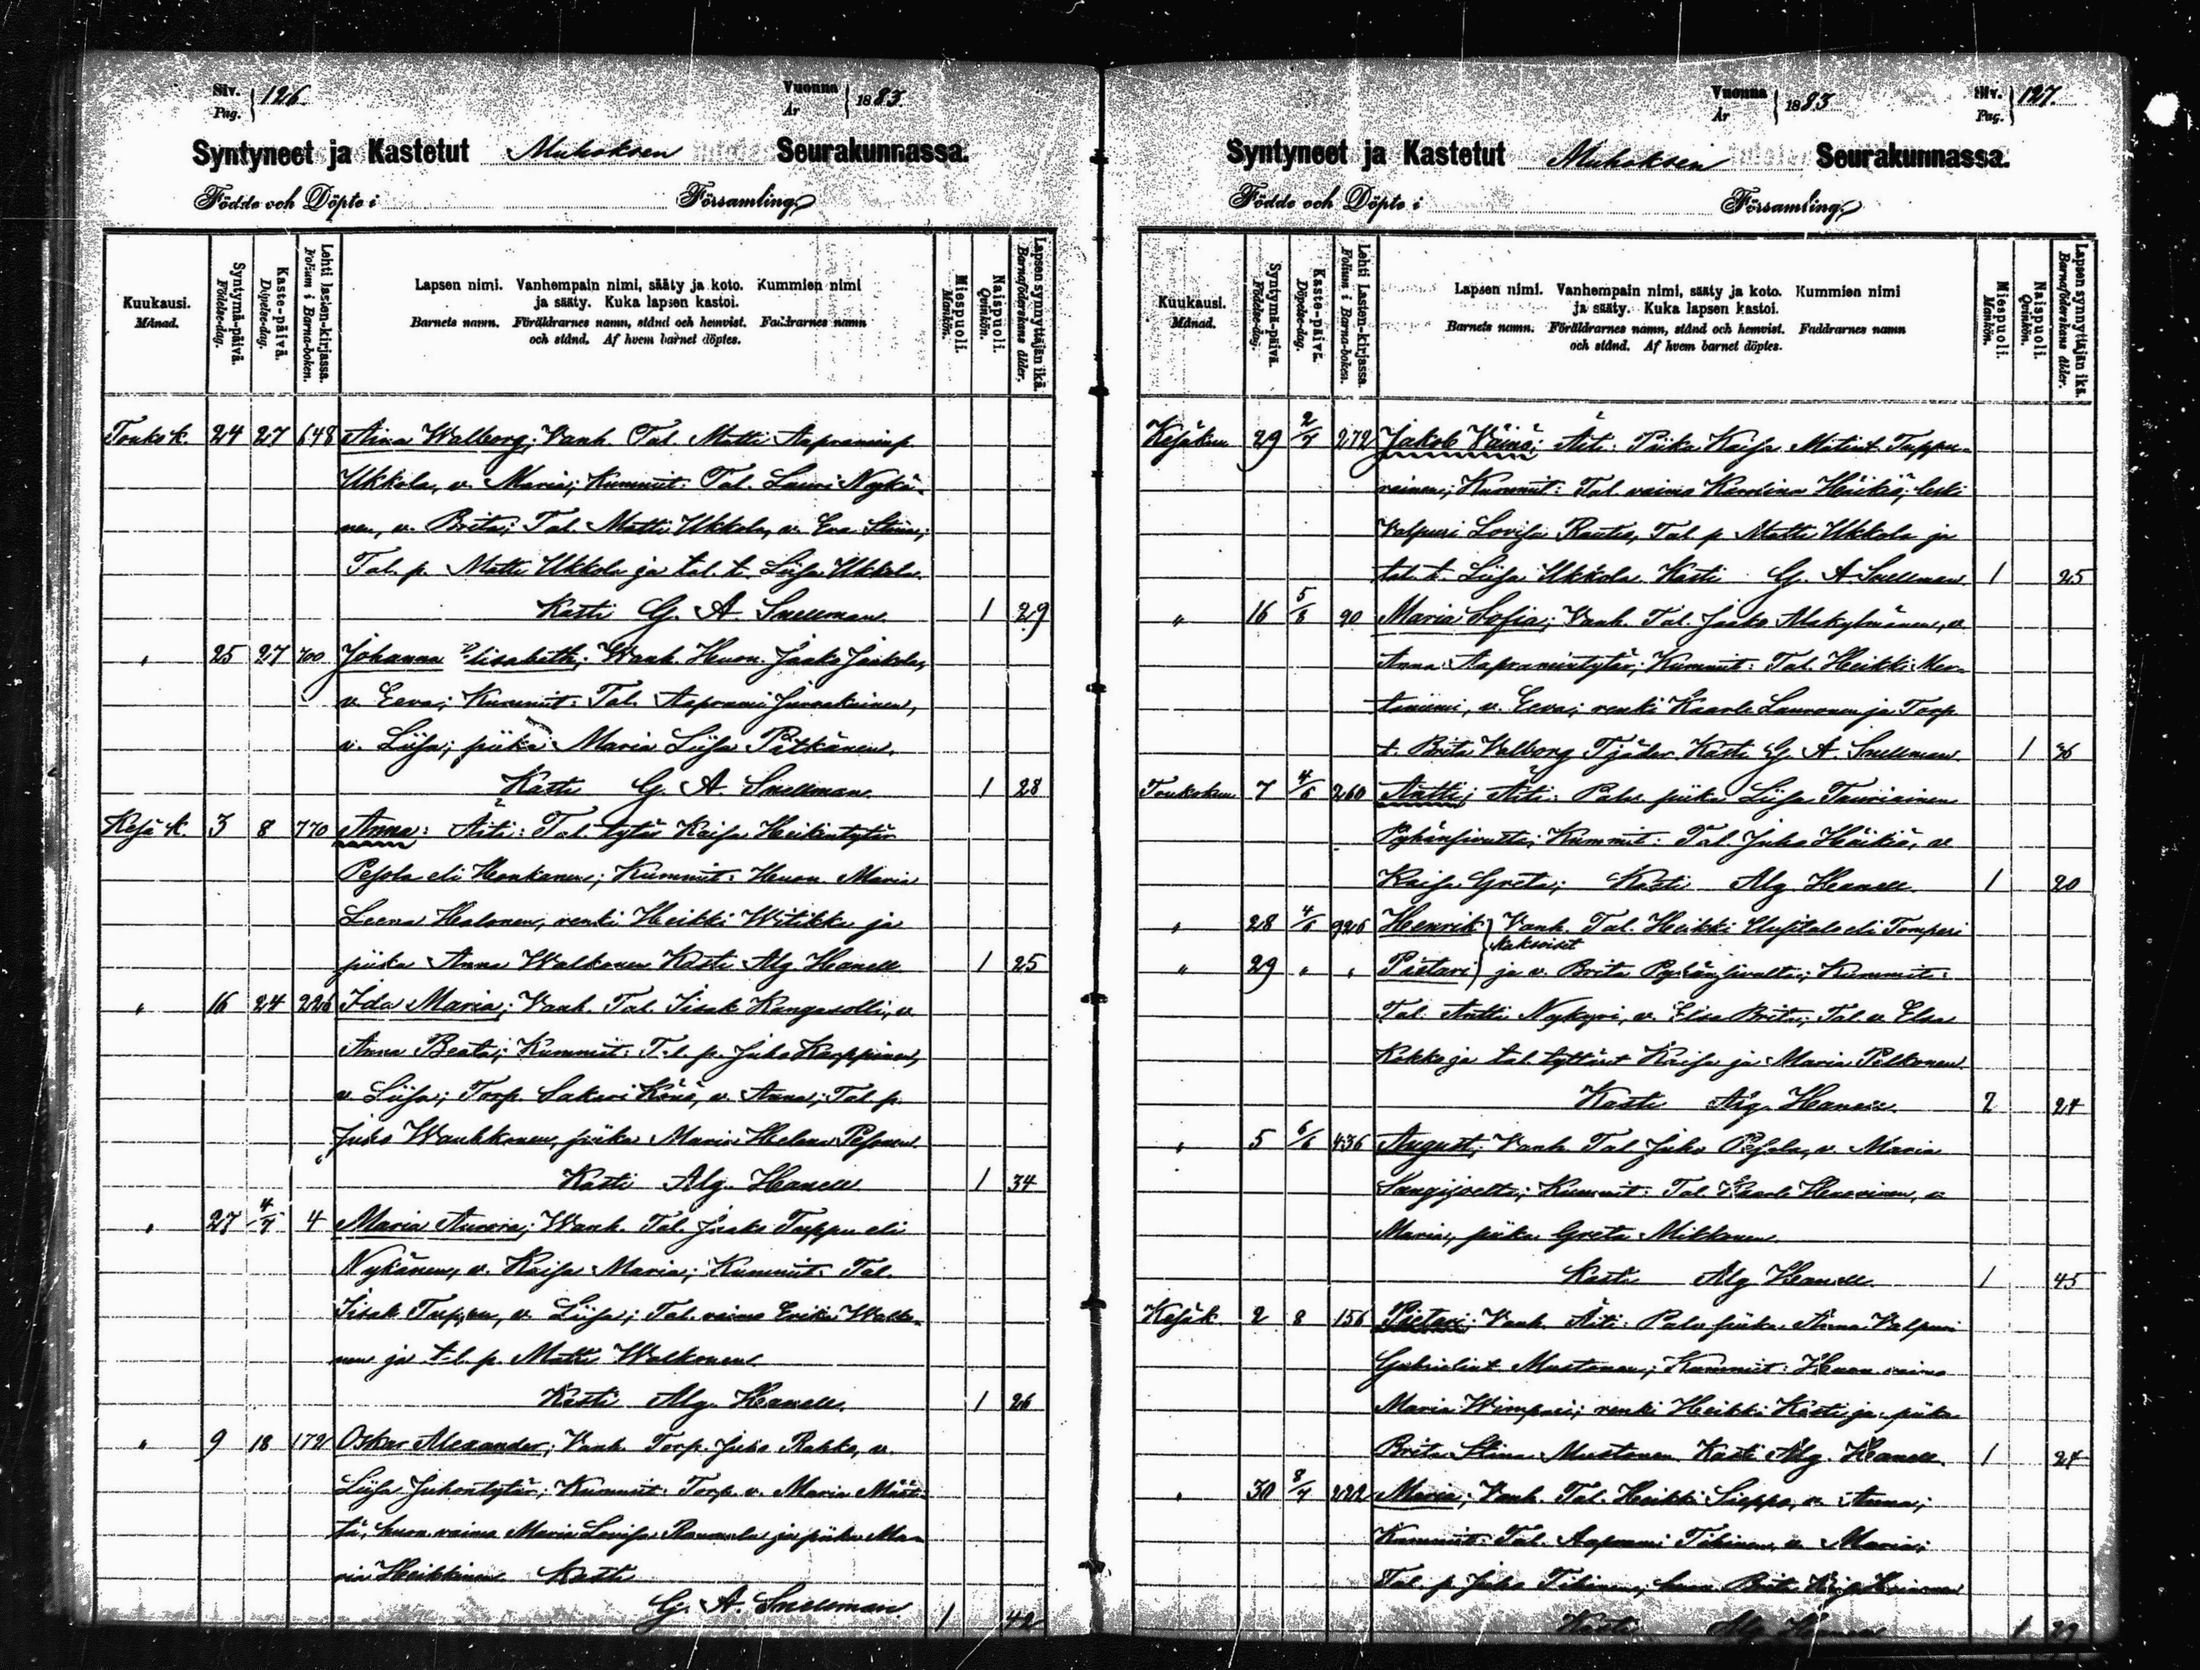 Siv. Pag. 126.
Vuonna År 1883.
Syntyneet ja Kastetut Muhoksen Seurakunnassa.
Födde och Döpte i Församling
Kuukausi. Månad.
Syntymä-päivä. Födelse-dag.
Kaste-päivä. Döpelse-dag.
Lehti lasten-kirjassa. Folium i Barna-boken.
Lapsen nimi. Vanhempain nimi, sääty ja koto. Kummien nimi
ja sääty. Kuka lapsen kastoi.
Barnets namn. Föräldrarnes namn, stånd och hemvist. Faddrarnes namn
och stånd. Af hvem barnet döptes.
Miespuoli. Mankön.
Naispuoli. Qvinkön.
Lapsen synnyttäjän ikä. Barnaföderskans ålder.
Toukok. 24 27 648 Aina Walborg; Vanh. Tal. Matti Aapraminp.
Ukkola, v. Maria; Kummit: Tal. Lauri Nykä-
nen, v. Brita; Tal. Matti Ukkola, v. Eva Stina;
Tal. p. Matti Ukkola ja tal. t. Liisa Ukkola.
Kasti G. A. Snellman. 1 29
" 25 27 700 Johanna Elisabeth; Vanh. Huon. Jaako Jaakola,
v. Eeva; Kummit: Tal. Aaprami Juurakainen,
v. Liisa; piika Maria Liisa Pitkänen.
Kasti G. A. Snellman. 1 28
Kesä k. 3 8 770 Anna: Äiti: Tal. tytär Kaisa Heikintytär
Pesola eli Honkanen; Kummit: Huon. Maria
Leena Halonen, renki Heikki Witikka ja
piika Anna Walkonen Kasti Alg. Hanell 1 25
" 16 24 226 Ida Maria; Vanh. Tal. Iisak Kangasolli, v.
Anna Beata; Kummit: T.l. p. Juho Karppinen,
v. Liisa; Torp. Sakari Köni, v. Anna; Tal. p.
Juho Wanhkonen, piika Maria Helena Pesonen
Kasti Alg. Hanell 1 34
" 27 4/7 4 Maria Aurora; Vanh. Tal. Jaako Tuppu eli
Nykänen, v. Kaisa Maria; Kummit: Tal.
Iisak Tuppu, v. Liisa; Tal. vaimo Erika Walko-
nen ja t.l. p. Matti Walkonen
Kasti Alg. Hanell. 1 26
" 9 18 172 Oskar Alexander; Vanh. Torp. Juho Rahko, v.
Liisa Juhontytär; Kummit: Torp. v. Maria Määt-
tä, huon. vaimo Maria Lovisa ja piika Ma-
ria Heikkinen Kasti
G. A. Snellman. 1 42
Vuonna År 1883
Siv. Pag. 127.
Syntyneet ja Kastetut Muhoksen Seurakunnassa.
Födde och Döpte i Församling
Kuukausi. Månad.
Syntymä-päivä. Födelse-dag.
Kaste-päivä. Döpelse-dag.
Lehti Lasten-kirjassa. Folium i Barna-boken.
Lapsen nimi. Vanhempain nimi, sääty ja koto. Kummien nimi
ja sääty. Kuka lapsen kastoi.
Barnets namn. Föräldrarnes namn, stånd och hemvist. Faddrarnes namn
och stånd. Af hvem barnet döptes.
Miespuoli. Mankön.
Naispuoli. Qvinkön.
Lapsen synnyttäjän ikä. Barnaföderskans ålder.
Kesäkuu 29 2/7 272 Jakob Väinö; Äiti: Piika Kaisa Matint. Tuppu-
rainen; Kummit: Tal. vaimo Karolina Häikiö; leski
Valpuri Lovisa Rautio, Tal. p. Matti Ukkola ja
tal. t. Liisa Ukkola. Kasti G. A. Snellman 1 25
" 16 5/8 90 Maria Sofia; Vanh. Tal. Jaako Alakylmänen, v.
Anna Aapramintytär; Kummit: Tal. Heikki Mer-
taniemi, v. Eeva; renki Kaarle Lauronen ja Torp.
t. Brita Valborg Tjäder. Kasti G. A. Snellman 1 36
Toukokuu 7 4/6 260 Antti; Äiti: Palv. piika Liisa Tauriainen
Pyhänsivulta; Kummit: Tal. Juho Häikiö, v.
Kaisa Greta; Kasti Alg. Hanell. 1 20
" 28 4/6 926 Henrik Vanh. Tal. Heikki Uusitalo eli Tomperi
kaksoiset
" 29 " " Pietari ja v. Brita Pyhänsivulta; Kummit:
Tal. Antti Nykyri, v. Elsa Brita; Tal. v. Elsa
Kokko ja tal. tyttäret Kaisa ja Maria Pelkonen.
Kasti Alg. Hanell. 2 24
" 5 6/6 436 August; Vanh. Tal. Juho Pesola, v. Maria
Sangijoelta; Kummit: Tal. Kaarle, v.
Maria, piika Greta Mikkonen.
Kasti Alg Hanell. 1 45
Kesäk. 2 8 156 Pietari: Vanh. Äiti: Palv. piika Anna Valpuri
Gabrielint. Mustonen; Kummit: Huon. vaimo
Maria Wimpari; renki Heikki Kästi ja piika
Brita Stina Mustonen. Kasti Alg. Hanell. 1 24
" 30 8/7 222 Maria; Vanh. Tal. Heikki Sieppo, v. Anna;
Kummit: Tal. Aaprami Tihinen, v. Maria;
Tal. p. Juho Tihinen, huon. Brita Kaisa
Kasti Alg. Hanell 1 29